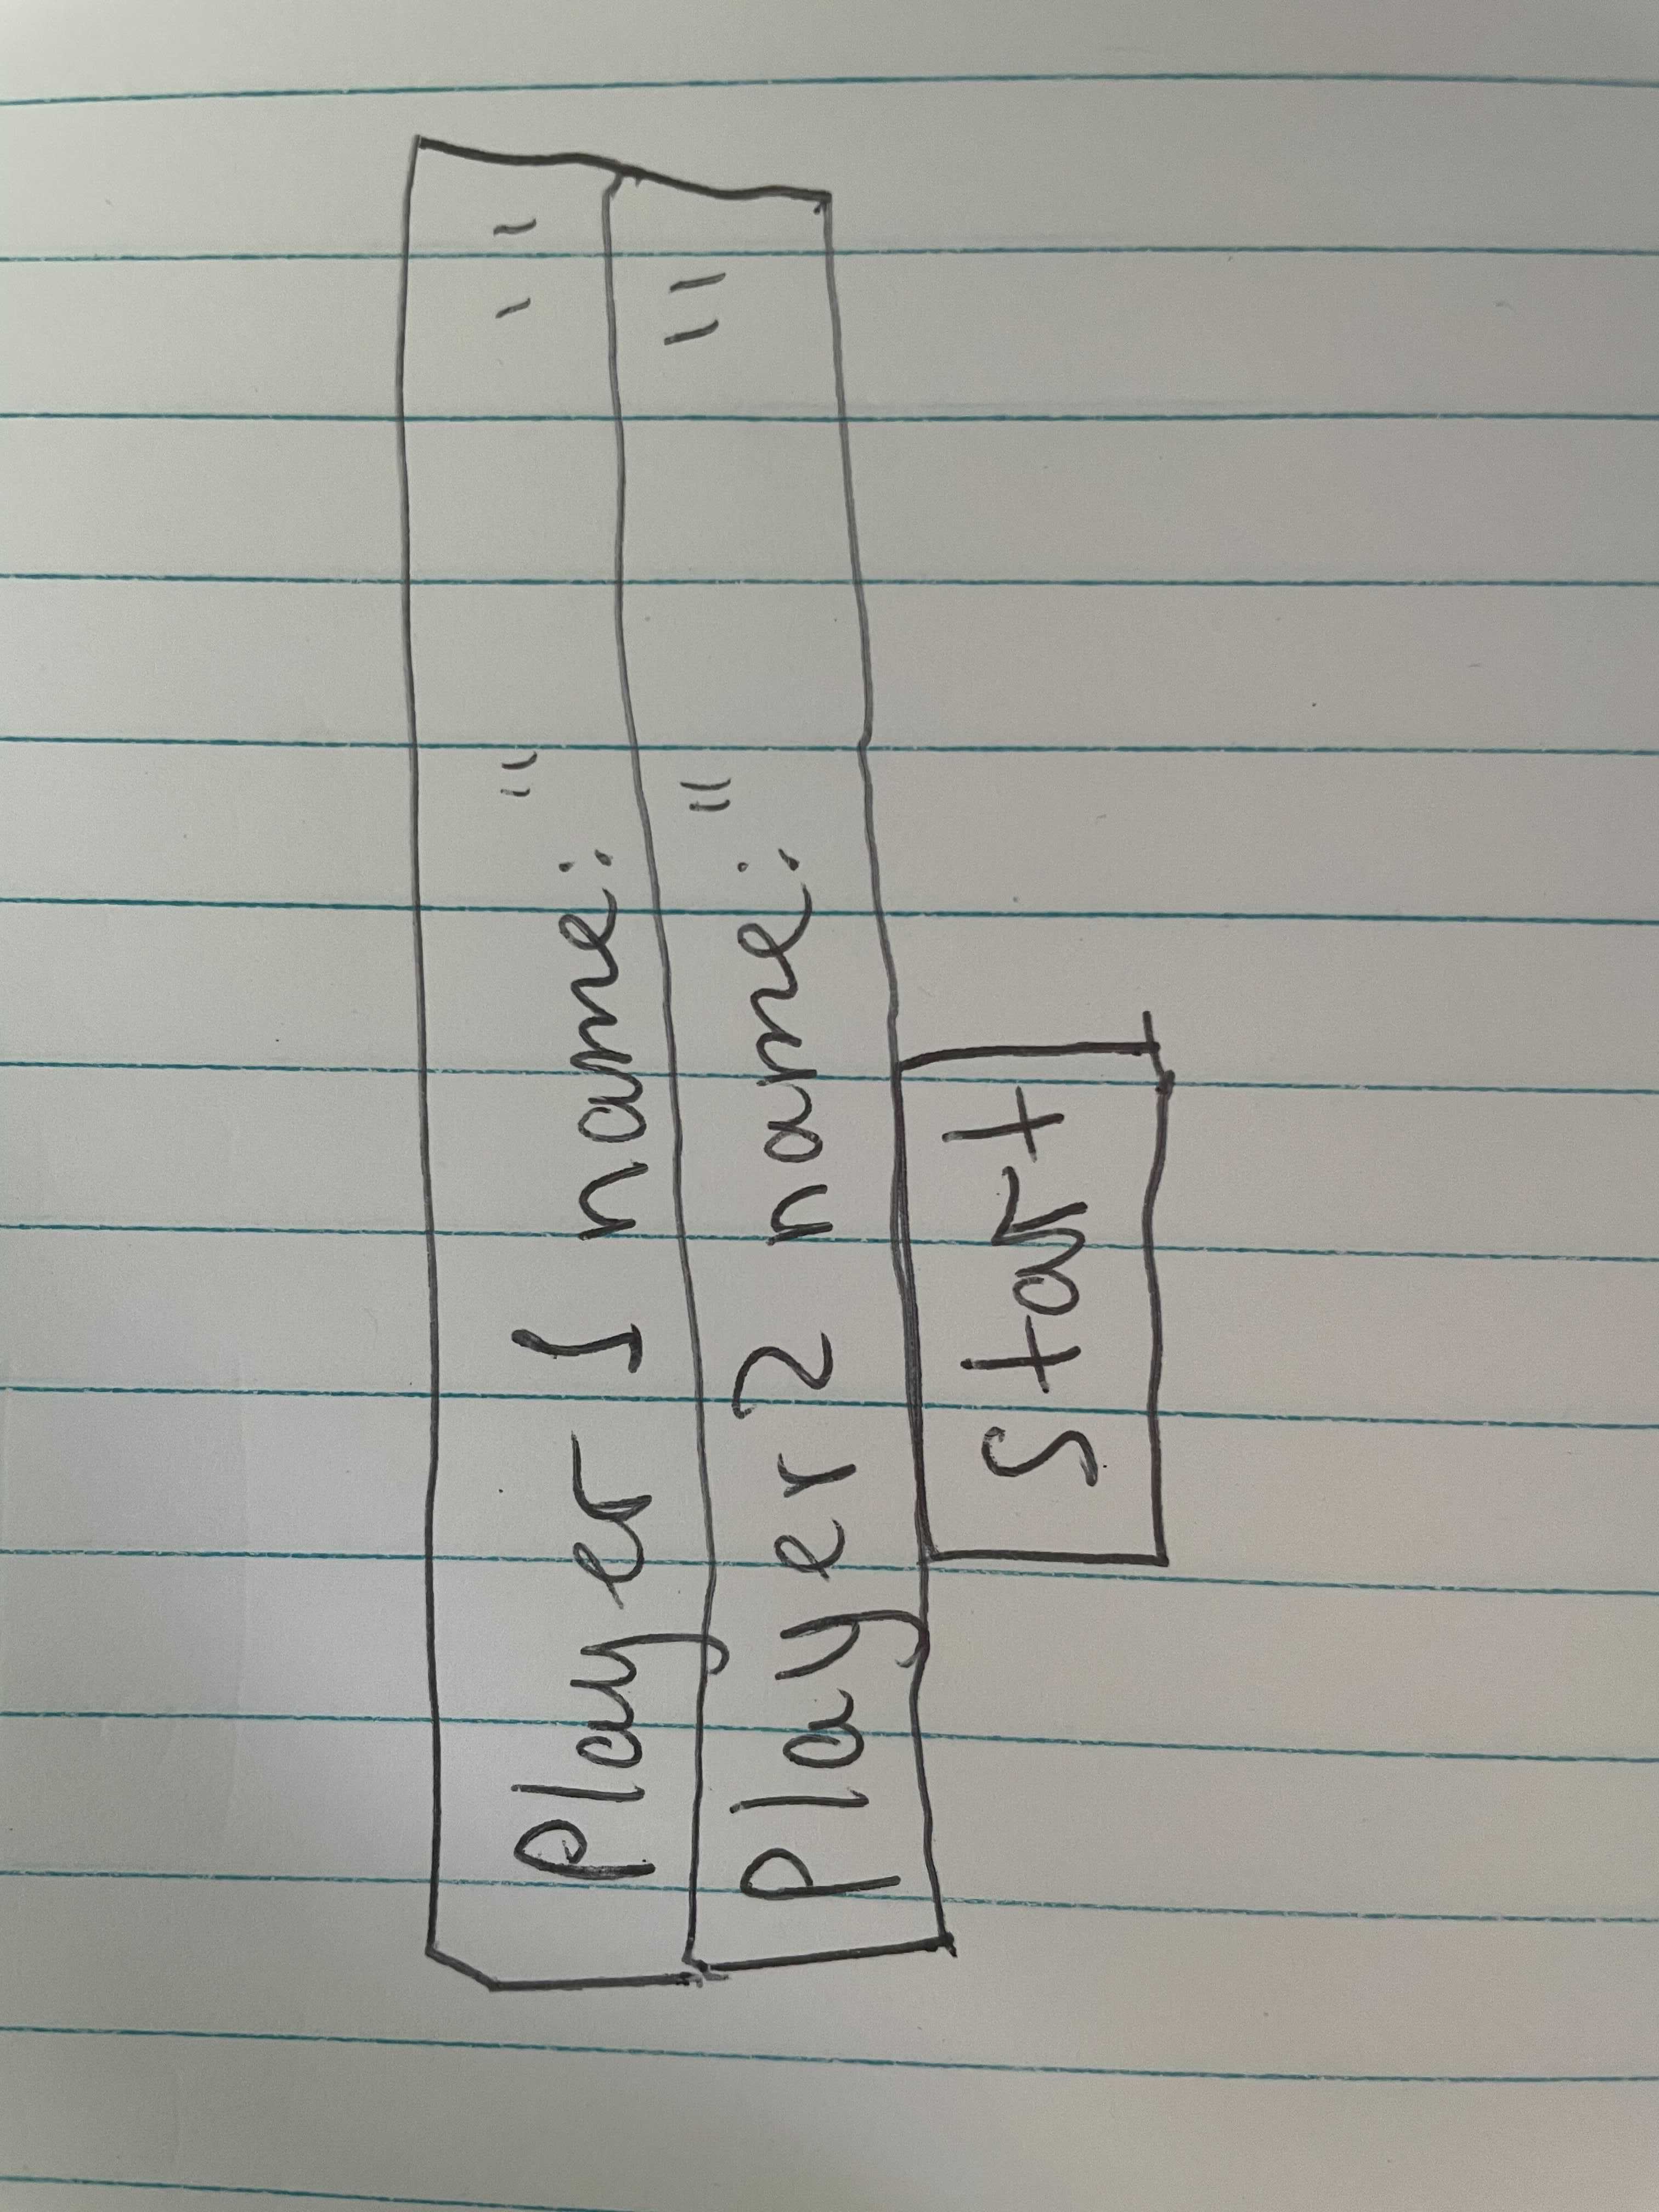 Player 1 name: " "
Player 2 name: " "
Start